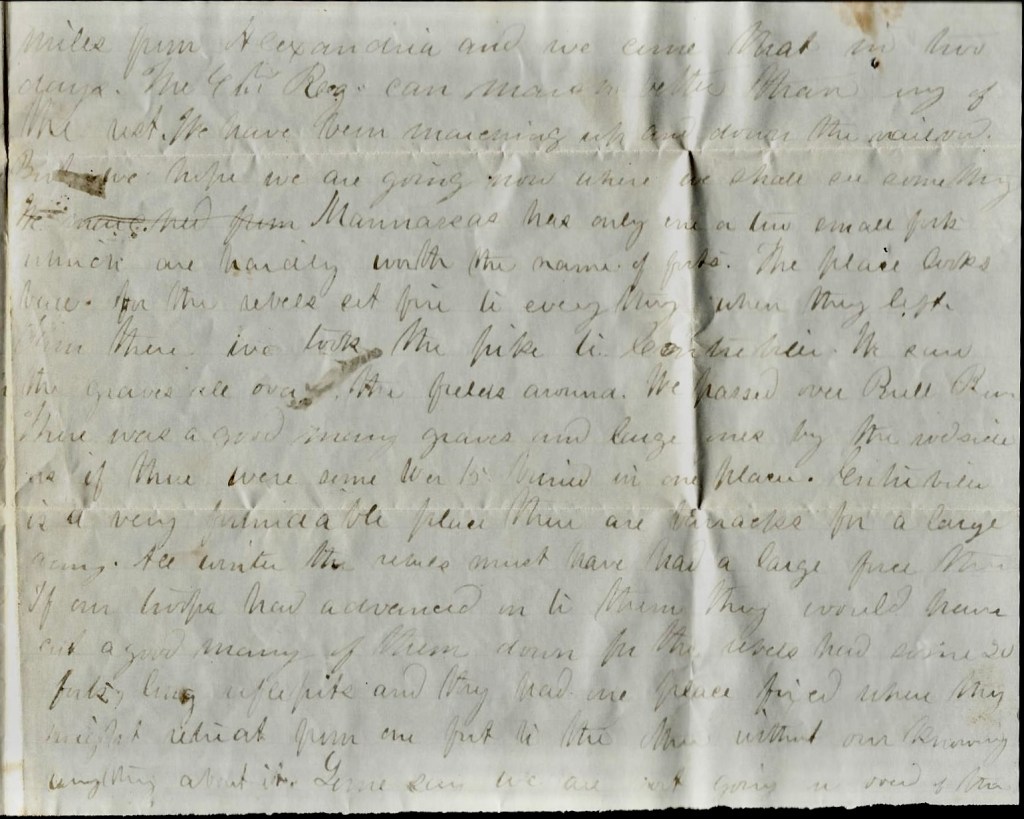 miles from Alexandria and we came that in two
days. The 6th Reg. can march better than any of
the rest. We have been marching up and down the railroad.
But we hope we are going now where we shall see something
We marched from Mannassas has only one or two small forts
which are hardly worth the name of forts. The place looks
bare. for the rebels set fire to every thing when they left.
From there we took the pike to Centreville. We saw
the graves all over the fields around. We passed over Bull Run
There was a good many graves and large ones by the rodside
as if there were some 10 or 15 buried in one place. Centreville
is a very formidable place there are barracks for a large
army. All winter the rebels must have had a large force there
If our troops had advanced on to them they would have
cut a good many of them down for the rebels had some 20
forts, long rifle pits and they had one place fixed where they
might retreat from one fort to the other without our knowing
anything about it. Some say we are not going in